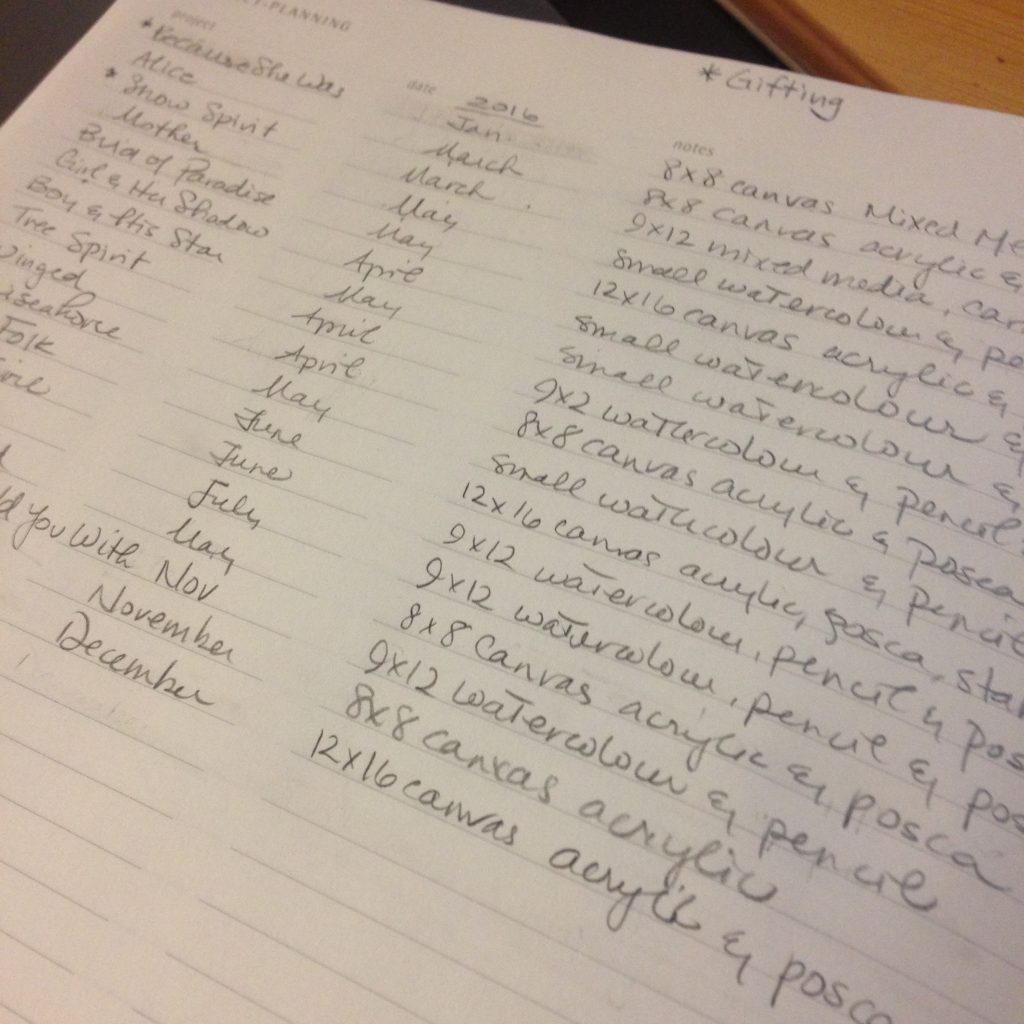 T-PLANNING
* Gifting
project date notes
2016
* Because She Was Jan 8x8 canvas Mixed Me
Alice March 8x8 canvas acrylic &
* Snow Spirit March 9x12 mixed media, car
Mother May small watercolour & pe
Bird of Paradise May 12x16 canvas acrylic &
Girl & Her Shadow April small watercolour &
Boy & His Star May small watercolour &
Tree Spirit April 9x2 watercolour & pencil
inged April 8x8 canvas acrylic & posca
seahorse May small watercolour & pencil
Folk June 12x16 canvas acrylic, posca, sta
June 9x12 watercolour, pencil & pos
July 9x12 watercolour, pencil & pos
May 8x8 Canvas acrylic & posca
d You With Nov 9x12 watercolour & pencil
November 8x8 canvas acrylic
December 12x16 canvas acrylic & posca